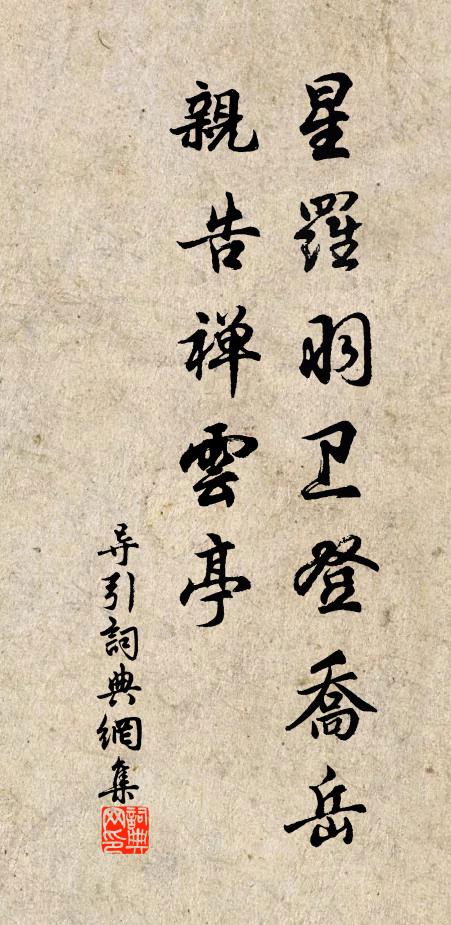 星羅羽卫登喬岳
親告禅雲亭
导引詞典網集
詞典网印